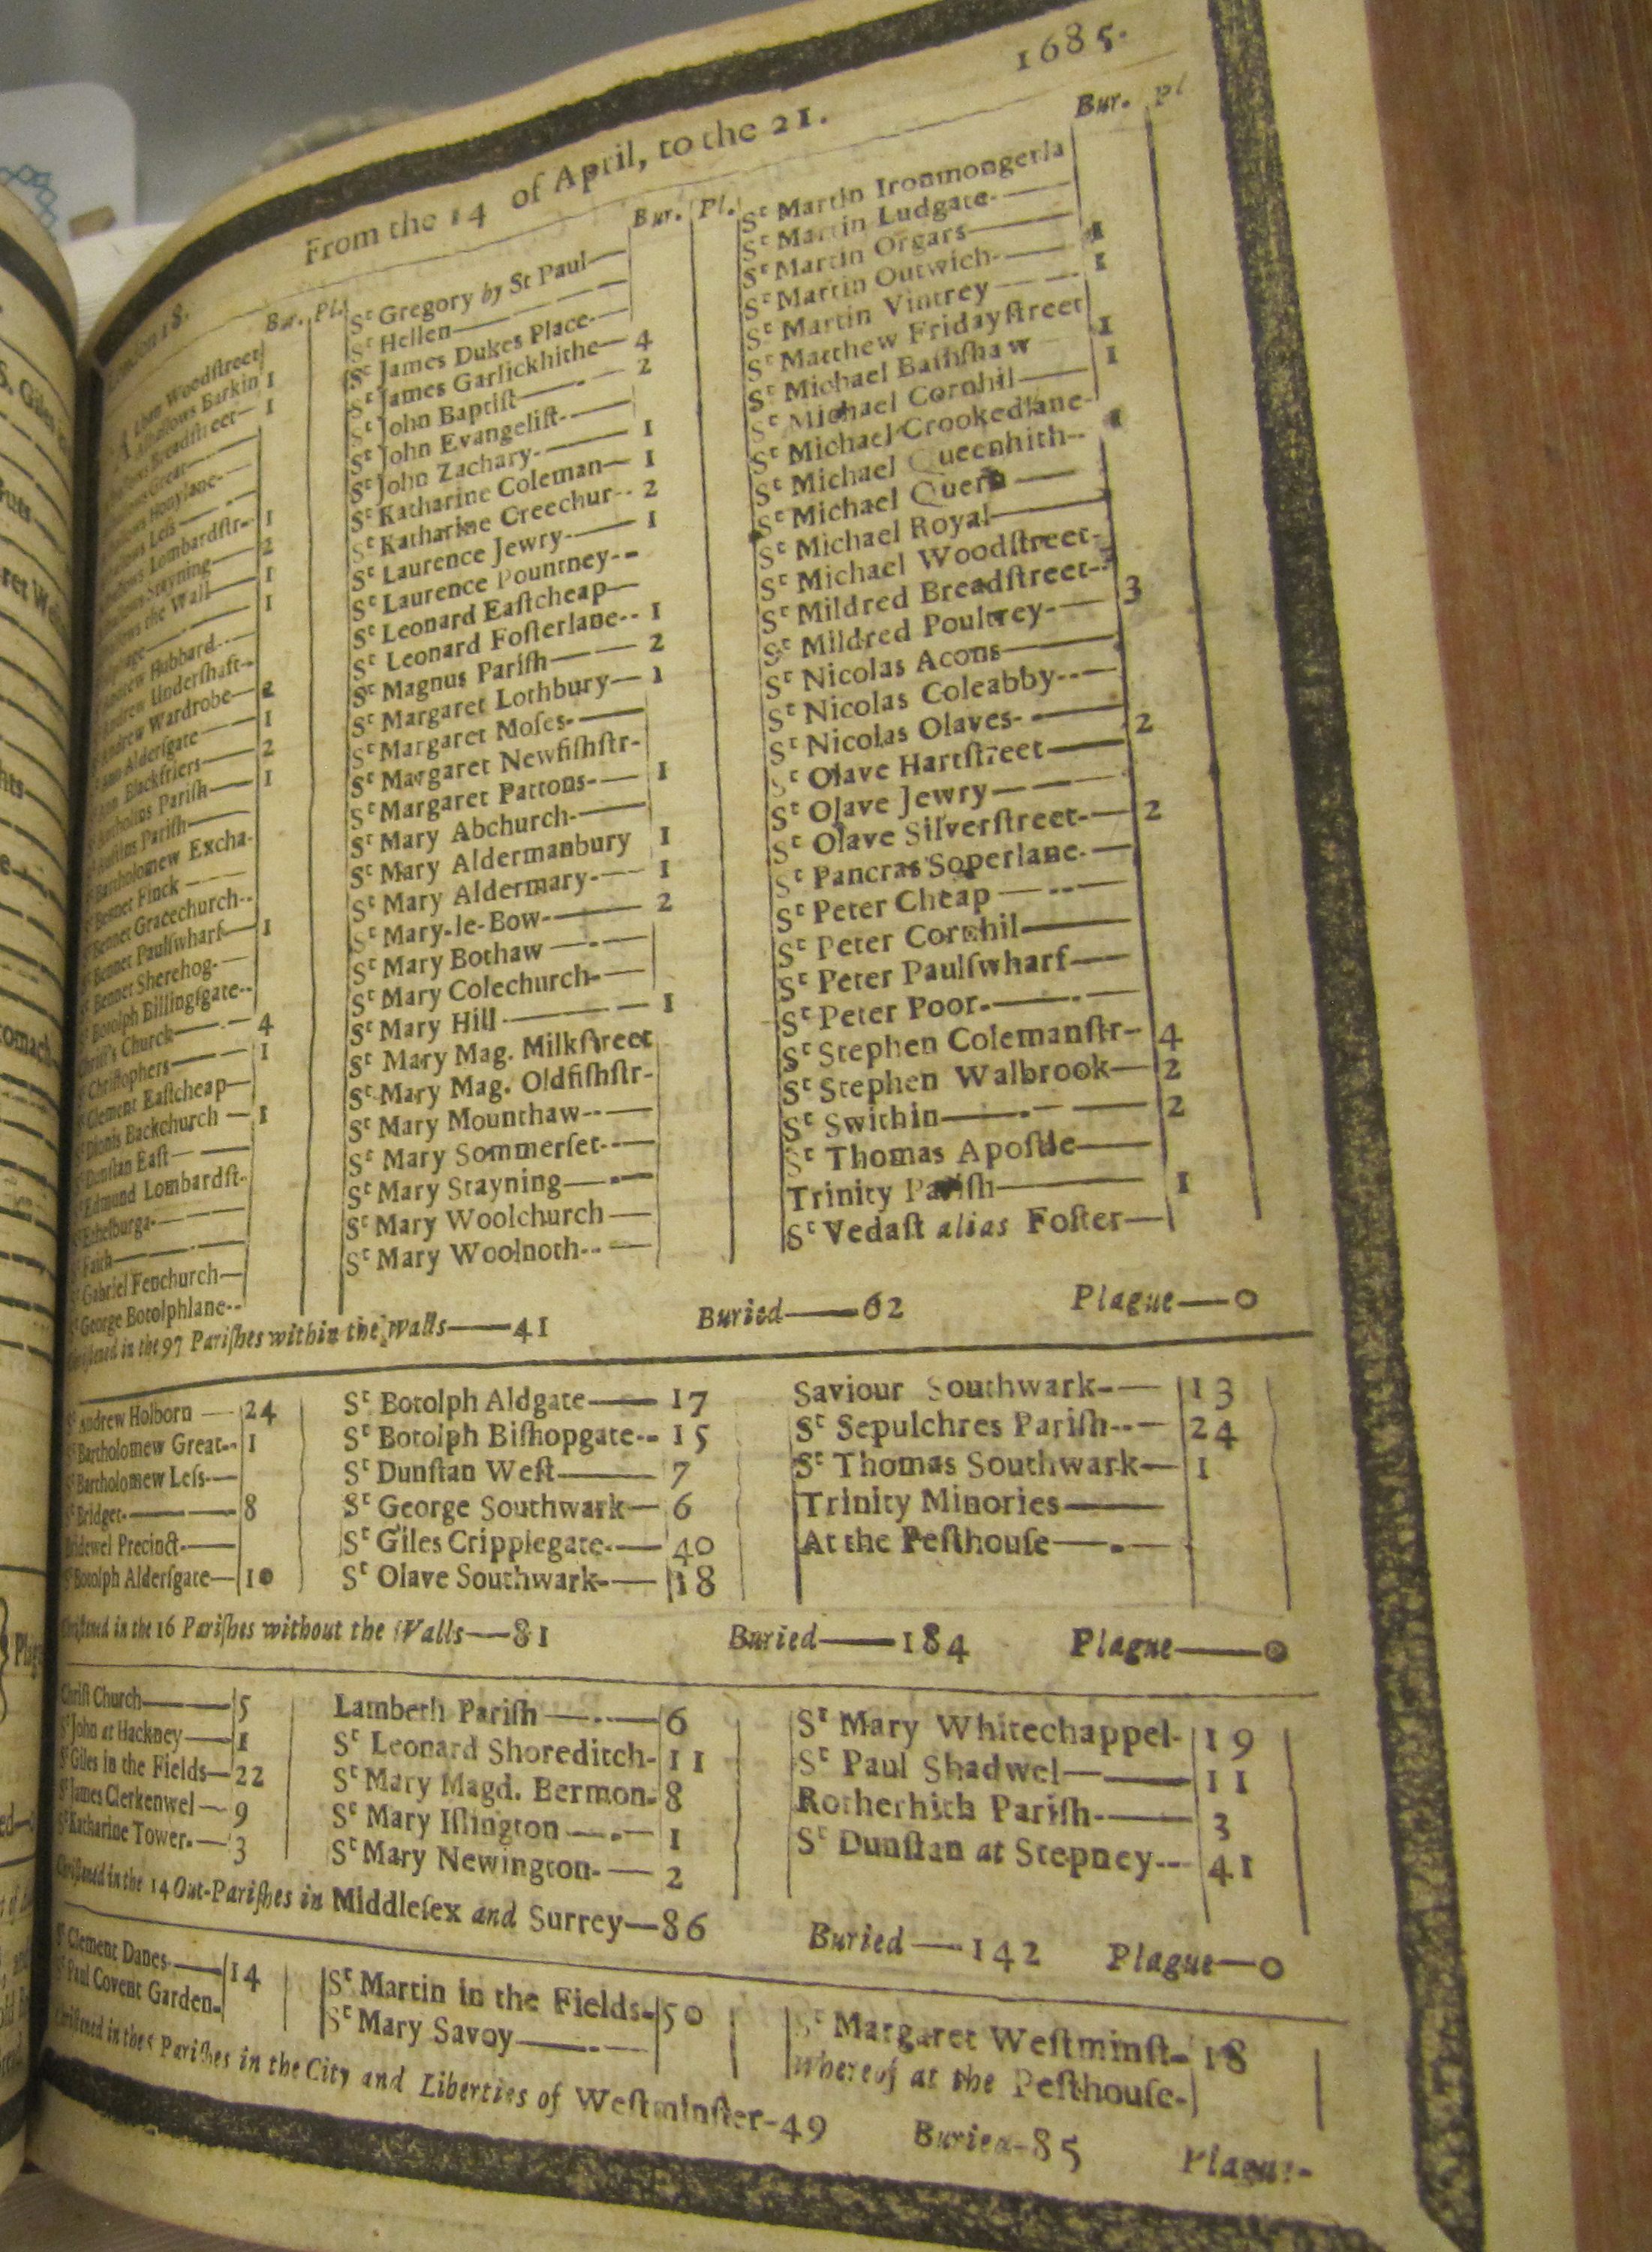 1685.
From the 14 of April, to the 21.
Bur. Pl.
Woodſtreet
Barkin 1
Breadſtreet— 1
Great—
Honylane-
Leſs—
Lombardſtr-- 1
Stayning— 2
the Wall— 1
— 1
Andrew Hubbard--
Andrew Underſhaft--
Andrew Wardrobe— 2
Ann Alderſgate— 1
Ann Blackfriers— 2
Pariſh— 1
Pariſh—
Bartholomew Excha-
Bennet Finck—
Bennet Gracechurch--
Bennet Paulſwharf— 1
Bennet Sherehog-—
Botolph Billingſgate--
Chriſt's Church— 4
St Chriſtophers— 1
St Clement Eaſtcheap—
St Dionis Backchurch— 1
St Dunſtan Eaſt—
St Edmund Lombardſt-
St Ethelburga-—
St Faith—
St Gabriel Fenchurch—
St George Botolphlane--
Bur. Pl.
St Gregory by St Paul—
St Hellen—
St James Dukes Place-—
St James Garlickhithe— 4
St John Baptiſt— 2
St John Evangeliſt-—
St John Zachary-— 1
St Katharine Coleman— 1
St Katharine Creechur-- 2
St Laurence Jewry-— 1
St Laurence Pountney--
St Leonard Eaſtcheap—
St Leonard Foſterlane-- 1
St Magnus Pariſh— 2
St Margaret Lothbury— 1
St Margaret Moſes-—
St Margaret Newfiſhſtr-
St Margaret Pattons-— 1
St Mary Abchurch-—
St Mary Aldermanbury 1
St Mary Aldermary-— 1
St Mary-le-Bow-— 2
St Mary Bothaw—
St Mary Colechurch-—
St Mary Hill— 1
St Mary Mag. Milkſtreet
St Mary Mag. Oldfiſhſtr-
St Mary Mounthaw--—
St Mary Sommerſet-—
St Mary Stayning—
St Mary Woolchurch—
St Mary Woolnoth--—
Bur. Pl
St Martin Ironmongerla
St Martin Ludgate-—
St Martin Orgars—
St Martin Outwich-— 1
St Martin Vintrey— 1
St Matthew Fridayſtreet
St Michael Baſſiſhaw 1
St Michael Cornhil— 1
St Michael Crookedlane-
St Michael Queenhith-- 1
St Michael Quern—
St Michael Royal—
St Michael Woodſtreet-
St Mildred Breadſtreet--
St Mildred Poultrey-— 3
St Nicolas Acons—
St Nicolas Coleabby--—
St Nicolas Olaves-—
St Olave Hartſtreet— 2
St Olave Jewry—
St Olave Silverſtreet-— 2
St Pancras Soperlane-—
St Peter Cheap—
St Peter Cornhil—
St Peter Paulſwharf—
St Peter Poor-—
St Stephen Colemanſtr- 4
St Stephen Walbrook— 2
St Swithin— 2
St Thomas Apoſtle—
Trinity Pariſh— 1
St Vedaſt alias Foſter—
in the 97 Pariſhes within the Walls—41 Buried—62 Plague—0
St Andrew Holborn— 24
St Bartholomew Great-- 1
St Bartholomew Leſs-—
St Bridget-— 8
Bridewel Precinct-—
St Botolph Alderſgate— 10
St Botolph Aldgate— 17
St Botolph Biſhopgate-- 15
St Dunſtan Weſt— 7
St George Southwark— 6
St Giles Cripplegate-— 40
St Olave Southwark-— 18
Saviour Southwark-— 13
St Sepulchres Pariſh--— 24
St Thomas Southwark— 1
Trinity Minories—
At the Peſthouſe—
in the 16 Pariſhes without the Walls—81 Buried—184 Plague—0
Chriſt Church— 5
St John at Hackney— 1
St Giles in the Fields— 22
St James Clerkenwel— 9
St Katharine Tower-— 3
Lambeth Pariſh— 6
St Leonard Shoreditch- 11
St Mary Magd. Bermon- 8
St Mary Iſlington— 1
St Mary Newington-— 2
St Mary Whitechappel- 19
St Paul Shadwel— 11
Rotherhith Pariſh-— 3
St Dunſtan at Stepney-- 41
Chriſtened in the 14 Out-Pariſhes in Middleſex and Surrey—86 Buried—142 Plague—0
St Clement Danes-— 14
St Paul Covent Garden-
St Martin in the Fields- 50
St Mary Savoy—
St Margaret Weſtminſt- 18
Whereof at the Peſthouſe-
Chriſtened in the 5 Pariſhes in the City and Liberties of Weſtminſter-49 Buried-85 Plague-